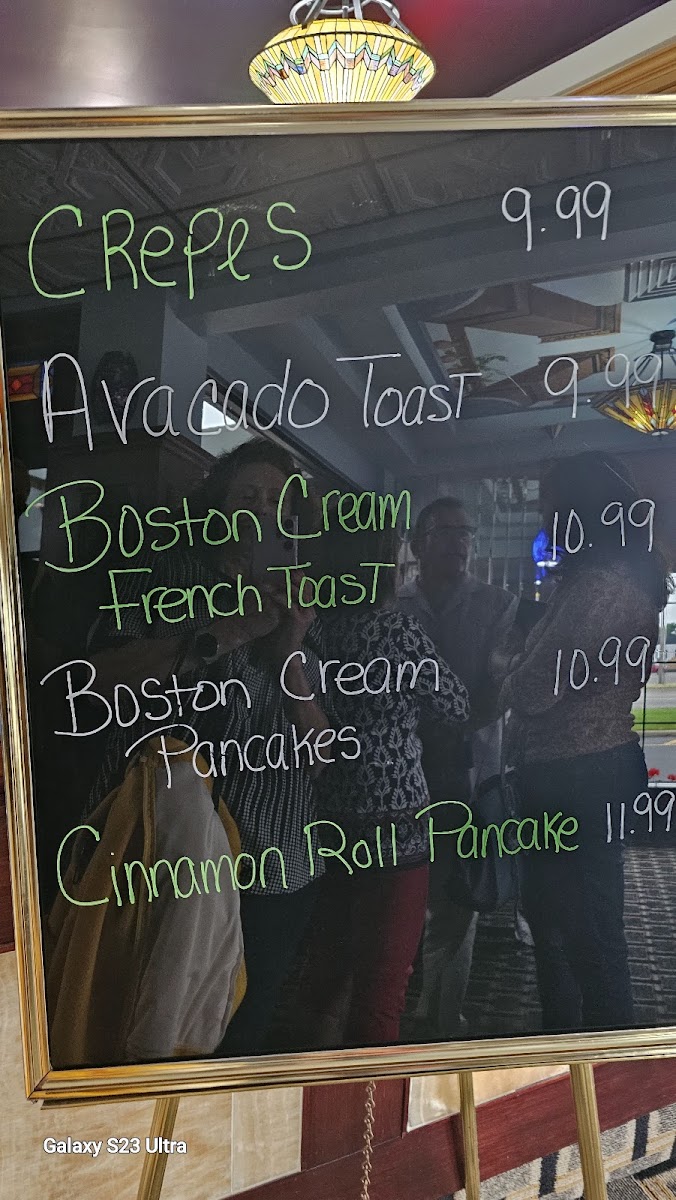 CRepes 9.99
Avacado Toast 9.99
Boston Cream 10.99
French Toast
Boston Cream 10.99
Pancakes
Cinnamon Roll Pancake 11.99
Galaxy S23 Ultra